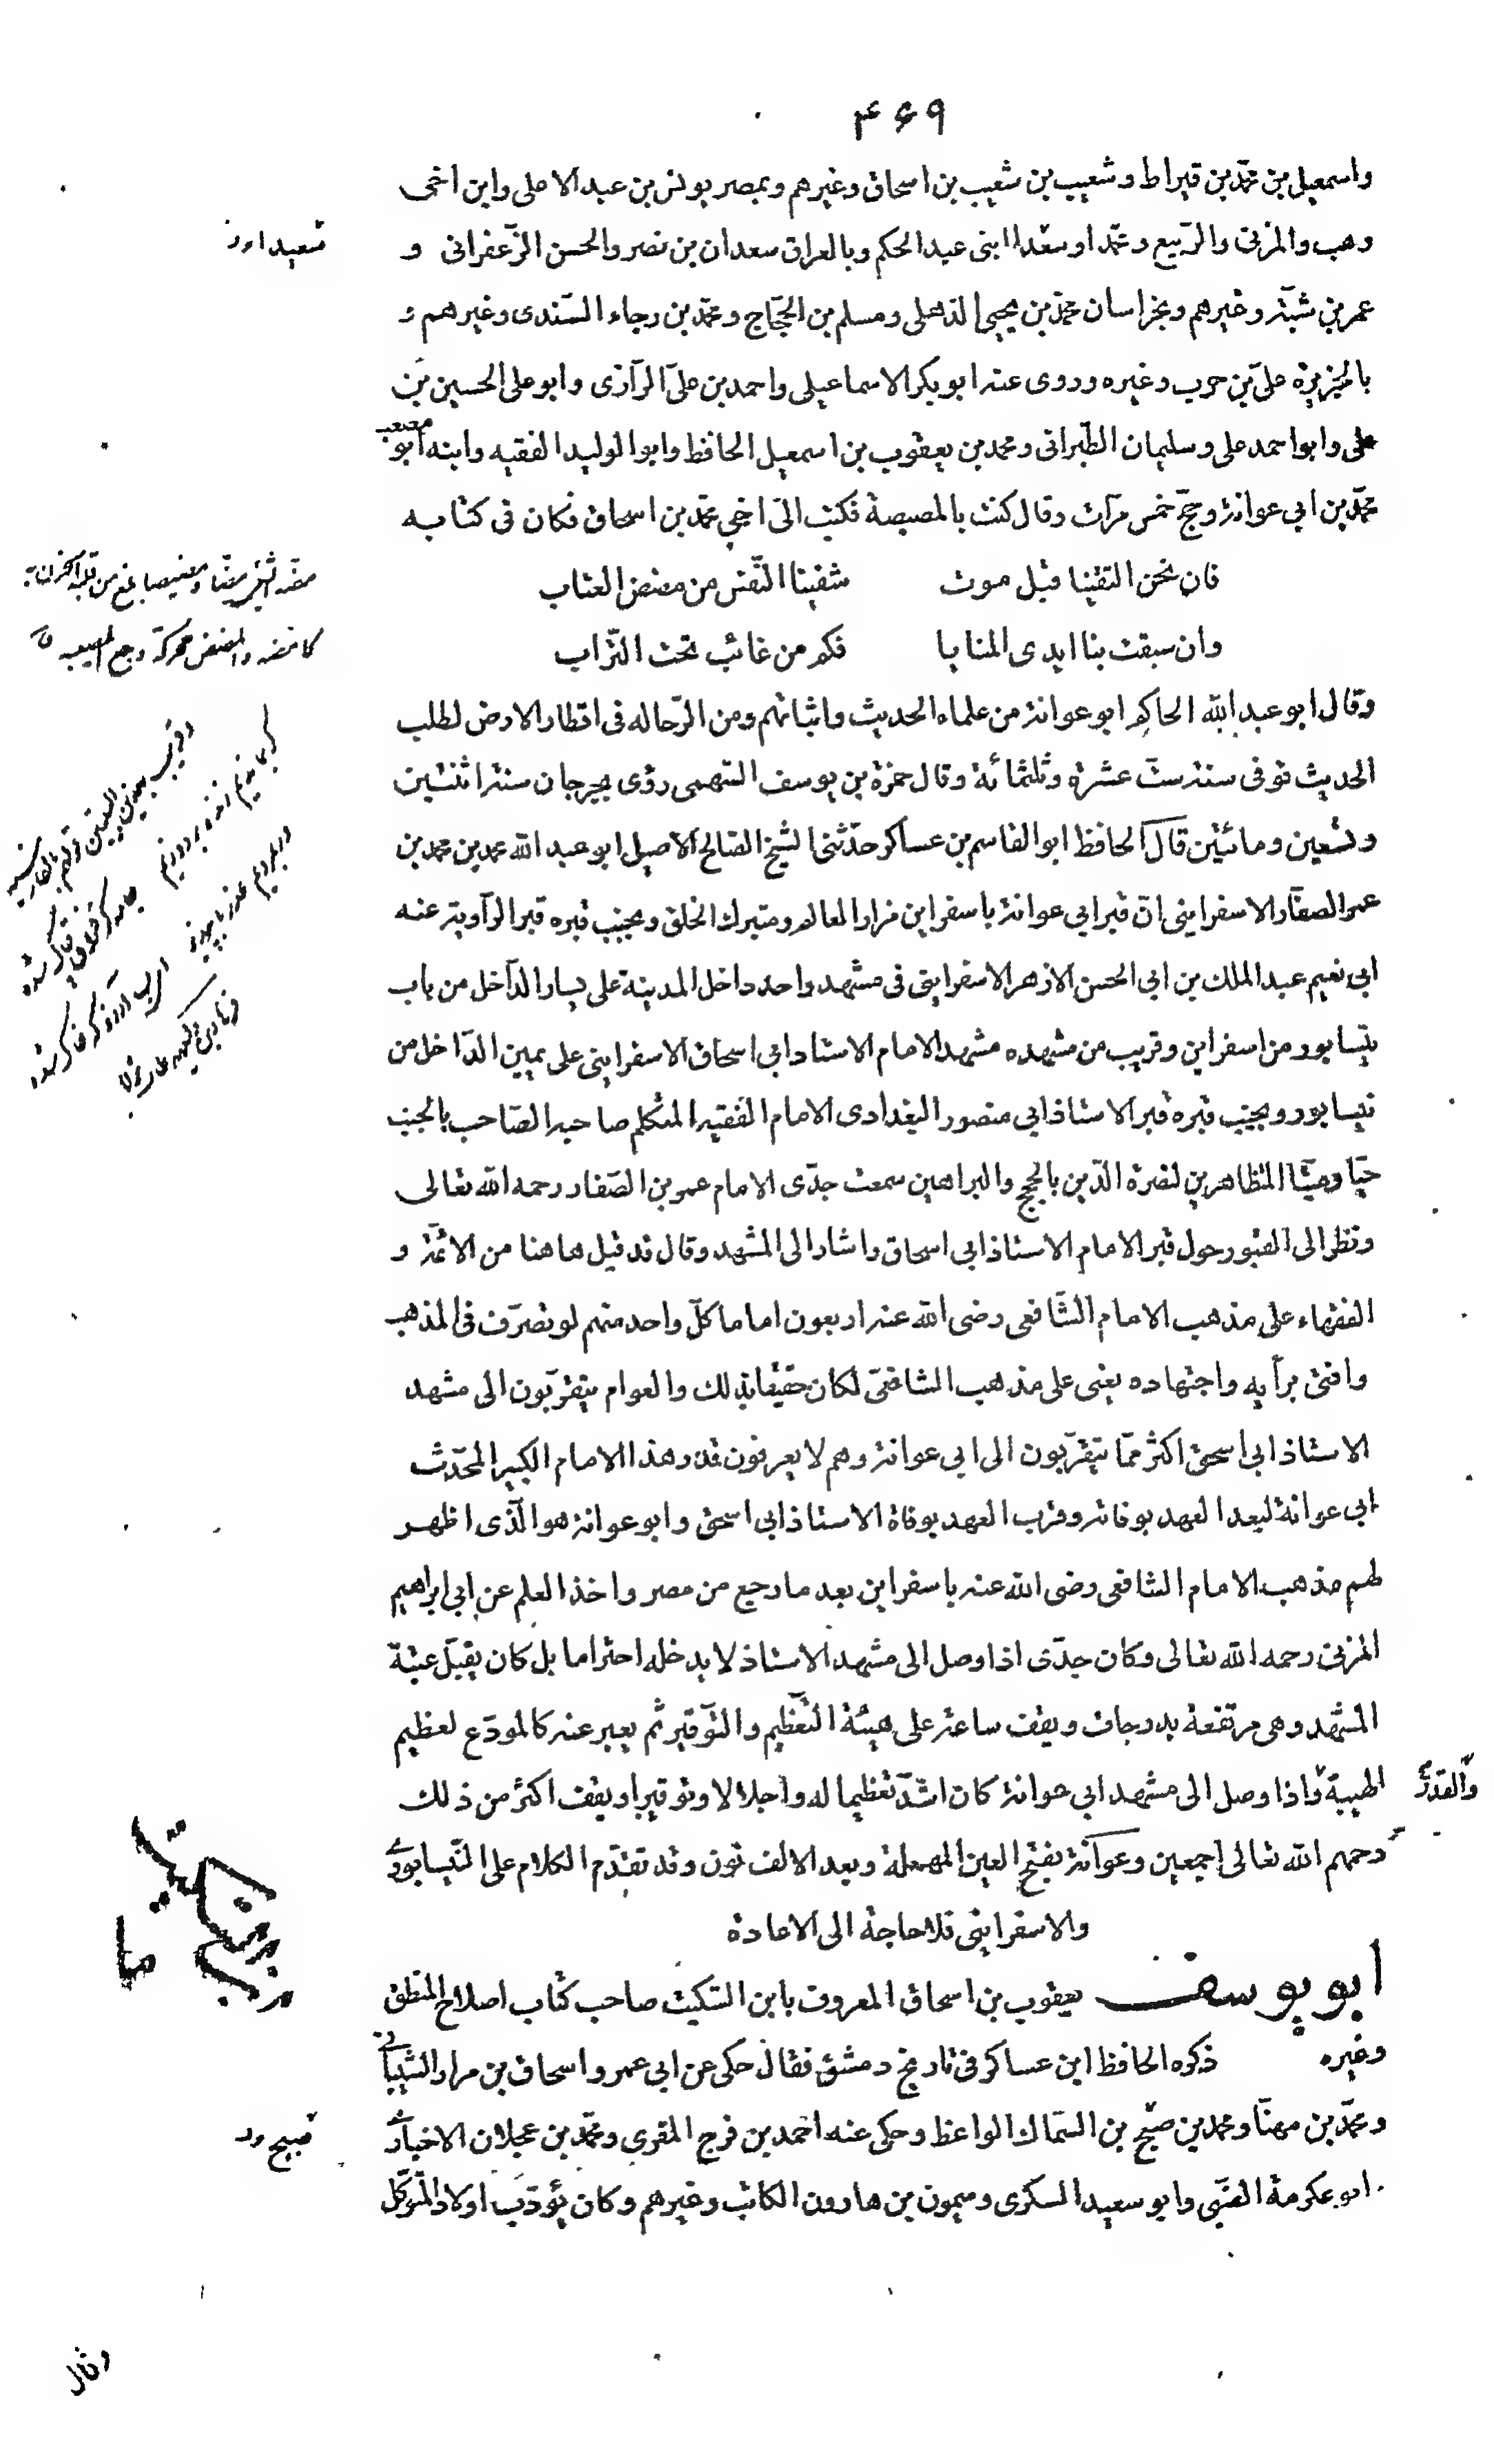 ۴۶۹
واسمعيل بن محمّد بن قيراط وشعيب بن شعيب بن اسحاق وغيرهم وبمصر يونس بن عبد الاعلى وابن اخى
وهب والمزنى والرّبيع ومحمّدا وسعدا ابنى عبد الحكم وبالعراق سعدان بن نصر والحسن الزّعفرانى و
عمر بن شبّة وغيرهم وبخراسان محمّد بن يحيى الذهلى ومسلم بن الحجّاج ومحمّد بن رجاء السّندى وغيرهم و
بالجزيرة علىّ بن حرب وغيره وروى عنه ابو بكر الاسماعيلى واحمد بن علىّ الرّازى وابو على الحسين بن
على وابو احمد على وسليمان الطّبرانى ومحمد بن يعقوب بن اسمعيل الحافظ وابو الوليد الفقيه وابنه ابو مصعب
محمّد بن ابى عوانة وحجّ خمس مرّات وقال كنت بالمصيصة فكتب الىّ اخى محمّد بن اسحاق فكان فى كتابه
فان نحن التقينا قبل موت شفينا النّفس من مضض العتاب
وان سبقت بنا ايدى المنايا فكم من غائب تحت التّراب
وقال ابو عبد الله الحاكم ابو عوانة من علماء الحديث واثباتهم ومن الرّحالة فى اقطار الارض لطلب
الحديث توفى سنة ستّ عشرة وثلثمائة وقال حمزة بن يوسف السّهمى رؤى بجرجان سنة اثنتين
وتسعين ومائتين قال الحافظ ابو القاسم بن عساكر حدّثنى الشيخ الصّالح الاصيل ابو عبد الله محمد بن محمد بن
عمر الصفّار الاسفراينى انّ قبر ابى عوانة باسفراين مزار العالم ومتبرك الخلق وبجنب قبره قبر الرّاوية عنه
ابى نعيم عبد الملك بن ابى الحسن الازهر الاسفراينى فى مشهد واحد داخل المدينة على يسار الدّاخل من باب
نيسابور من اسفراين وقريب من مشهده مشهد الامام الاستاد ابى اسحاق الاسفراينى على يمين الدّاخل من
نيسابور وبجنب قبره قبر الاستاذ ابى منصور البغدادى الامام الفقيه المتكلم صاحبه الصّاحب بالجنب
حيّا وميّتا المتظاهرين لنصرة الدّين بالحجج والبراهين سمعت جدّى الامام عمر بن الصّفار رحمه الله تعالى
ونظر الى القبور حول قبر الامام الاستاذ ابى اسحاق واشار الى المشهد وقال قد قيل هاهنا من الائمّة و
الفقهاء على مذهب الامام الشّافعى رضى الله عنه اربعون اماما كلّ واحد منهم لو تصرّف فى المذهب
وافتى برأيه واجتهاده يعنى على مذهب الشافعىّ لكان حقيقا بذلك والعوام يتقرّبون الى مشهد
الاستاذ ابى اسحق اكثر ممّا يتقرّبون الى ابى عوانة وهم لا يعرفون قدر هذا الامام الكبير المحدّث
ابى عوانة لبعد العهد بوفاته وقرب العهد بوفاة الاستاذ ابى اسحق وابو عوانة هو الّذى اظهر
لهم مذهب الامام الشافعى رضى الله عنه باسفراين بعد ما رجع من مصر واخذ العلم عن ابى ابراهيم
المزنى رحمه الله تعالى وكان جدّى اذا وصل الى مشهد الاستاذ لا يدخله احتراما بل كان يقبّل عتبة
المشهد وهى مرتفعة بدرجات ويقف ساعة على هيئة التّعظيم والتّوقير ثم يعبر عنه كالمودّع لعظيم
الهيبة واذا وصل الى مشهد ابى عوانة كان اشدّ تعظيما له واجلالا وتوقيرا ويقف اكثر من ذلك
والقدر
رحمهم الله تعالى اجمعين وعوانة بفتح العين المهملة وبعد الالف نون وقد تقدّم الكلام على النّيسابورى
والاسفراينى فلا حاجة الى الاعادة
ابو يوسف يعقوب بن اسحاق المعروف بابن السّكيت صاحب كتاب اصلاح المنطق
وغيره ذكره الحافظ ابن عساكر فى تاريخ دمشق فقال حكى عن ابى عمرو اسحاق بن مرار الشّيبانى
ومحمّد بن مهنّا ومحمد بن صبيح بن السّماك الواعظ وحكى عنه احمد بن فرج المقرى ومحمّد بن عجلان الاخبارى
ابو عكرمة الضبّى وابو سعيد السكرى وميمون بن هارون الكاتب وغيرهم وكان يؤدّب اولاد المتوكّل
وقال